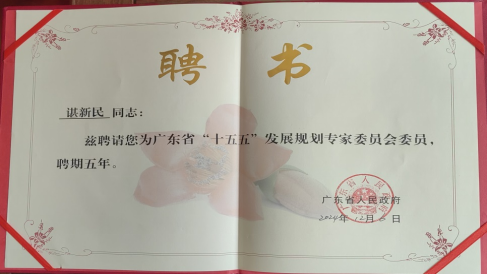 聘书
谌新民 同志：
兹聘请您为广东省“十五五”发展规划专家委员会委员，
聘期五年。
广东省人民政府
2024年12月 日